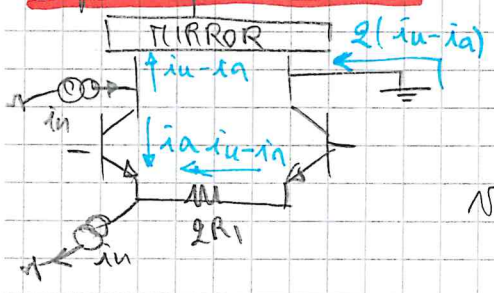 MIRROR
2(iu-ia)
iu-ia
in
ia iu-in
2R1
in